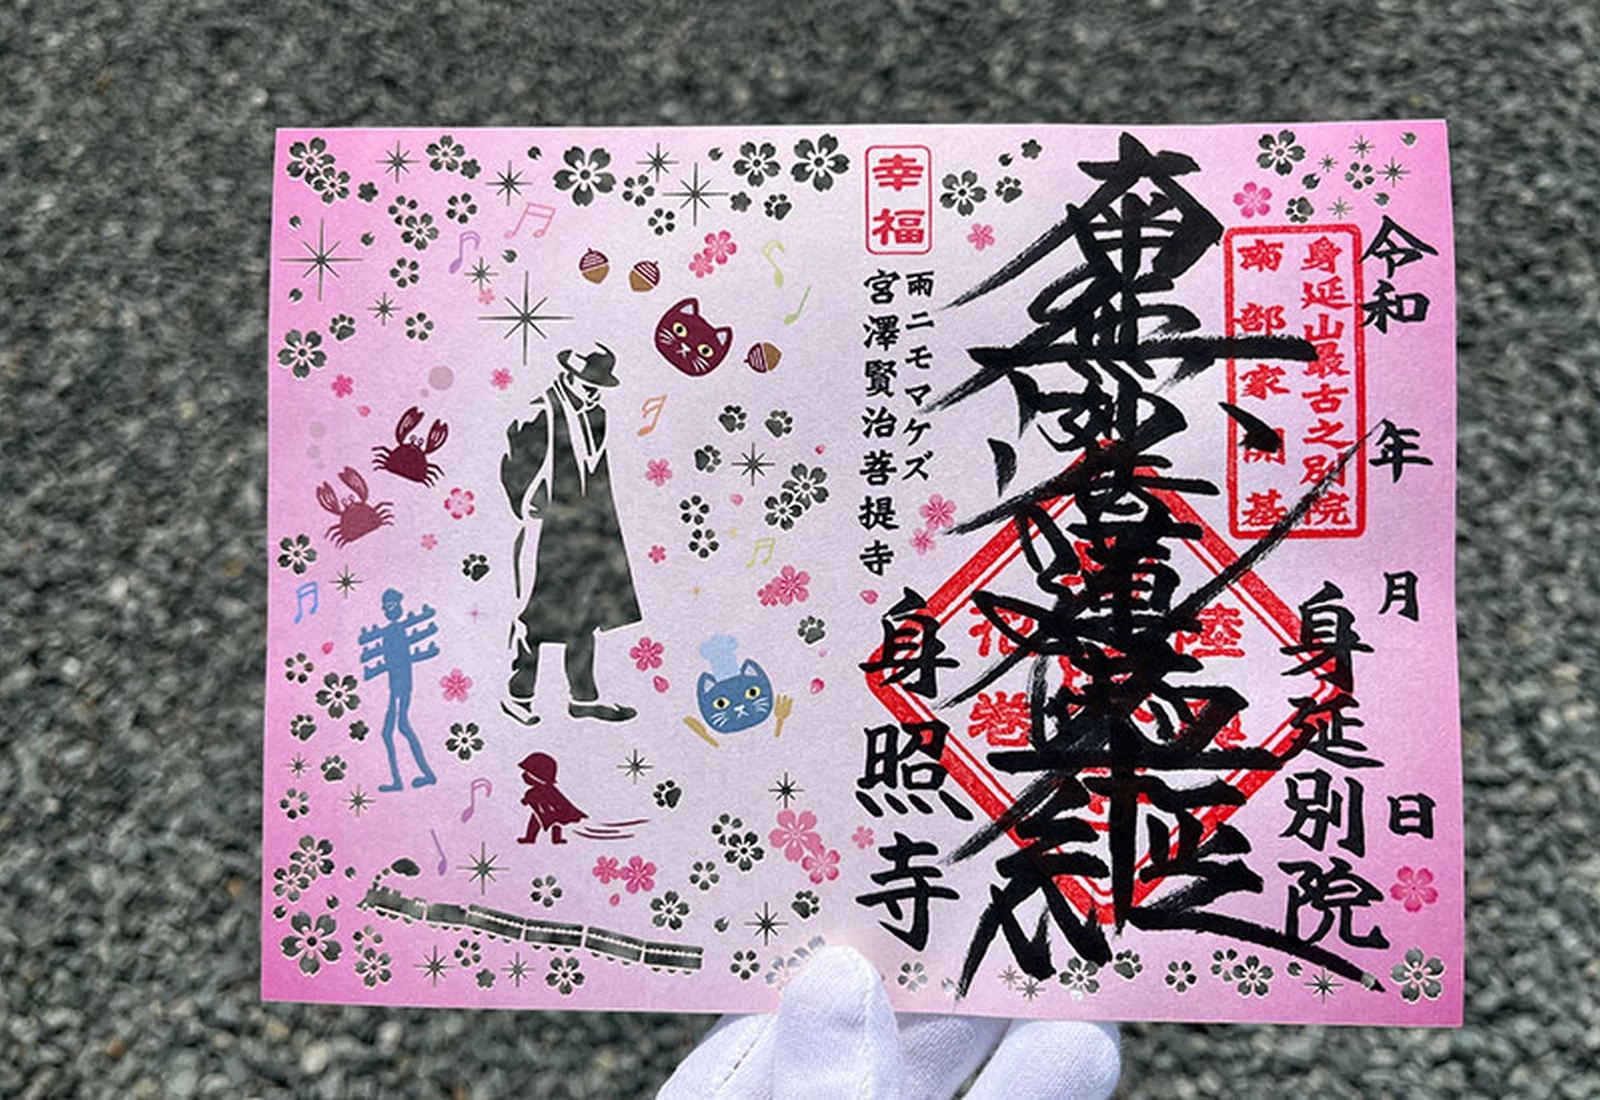 令和 年 月 日
身延山最古之別院
南部家開基
身延別院
南無妙法蓮華経
花巻
幸福
雨ニモマケズ
宮澤賢治菩提寺
身照寺